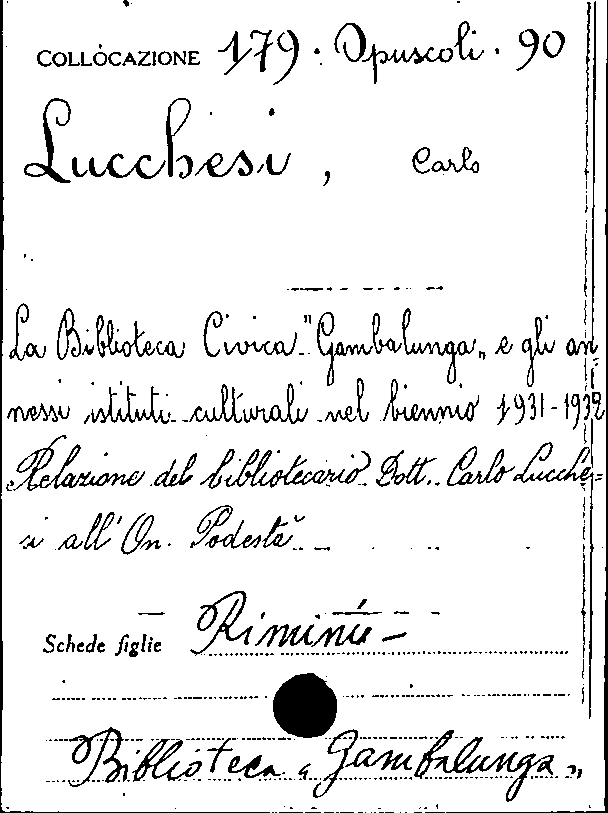 COLLOCAZIONE 179 · Opuscoli · 90
Lucchesi, Carlo
La Biblioteca Civica "Gambalunga„ e gli an-
nessi istituti culturali nel biennio 1931-1932
Relazione del bibliotecario Dott. Carlo Lucche=
si all' On. Podestà
Schede figlie Rimini —
Biblioteca „Gambalunga„